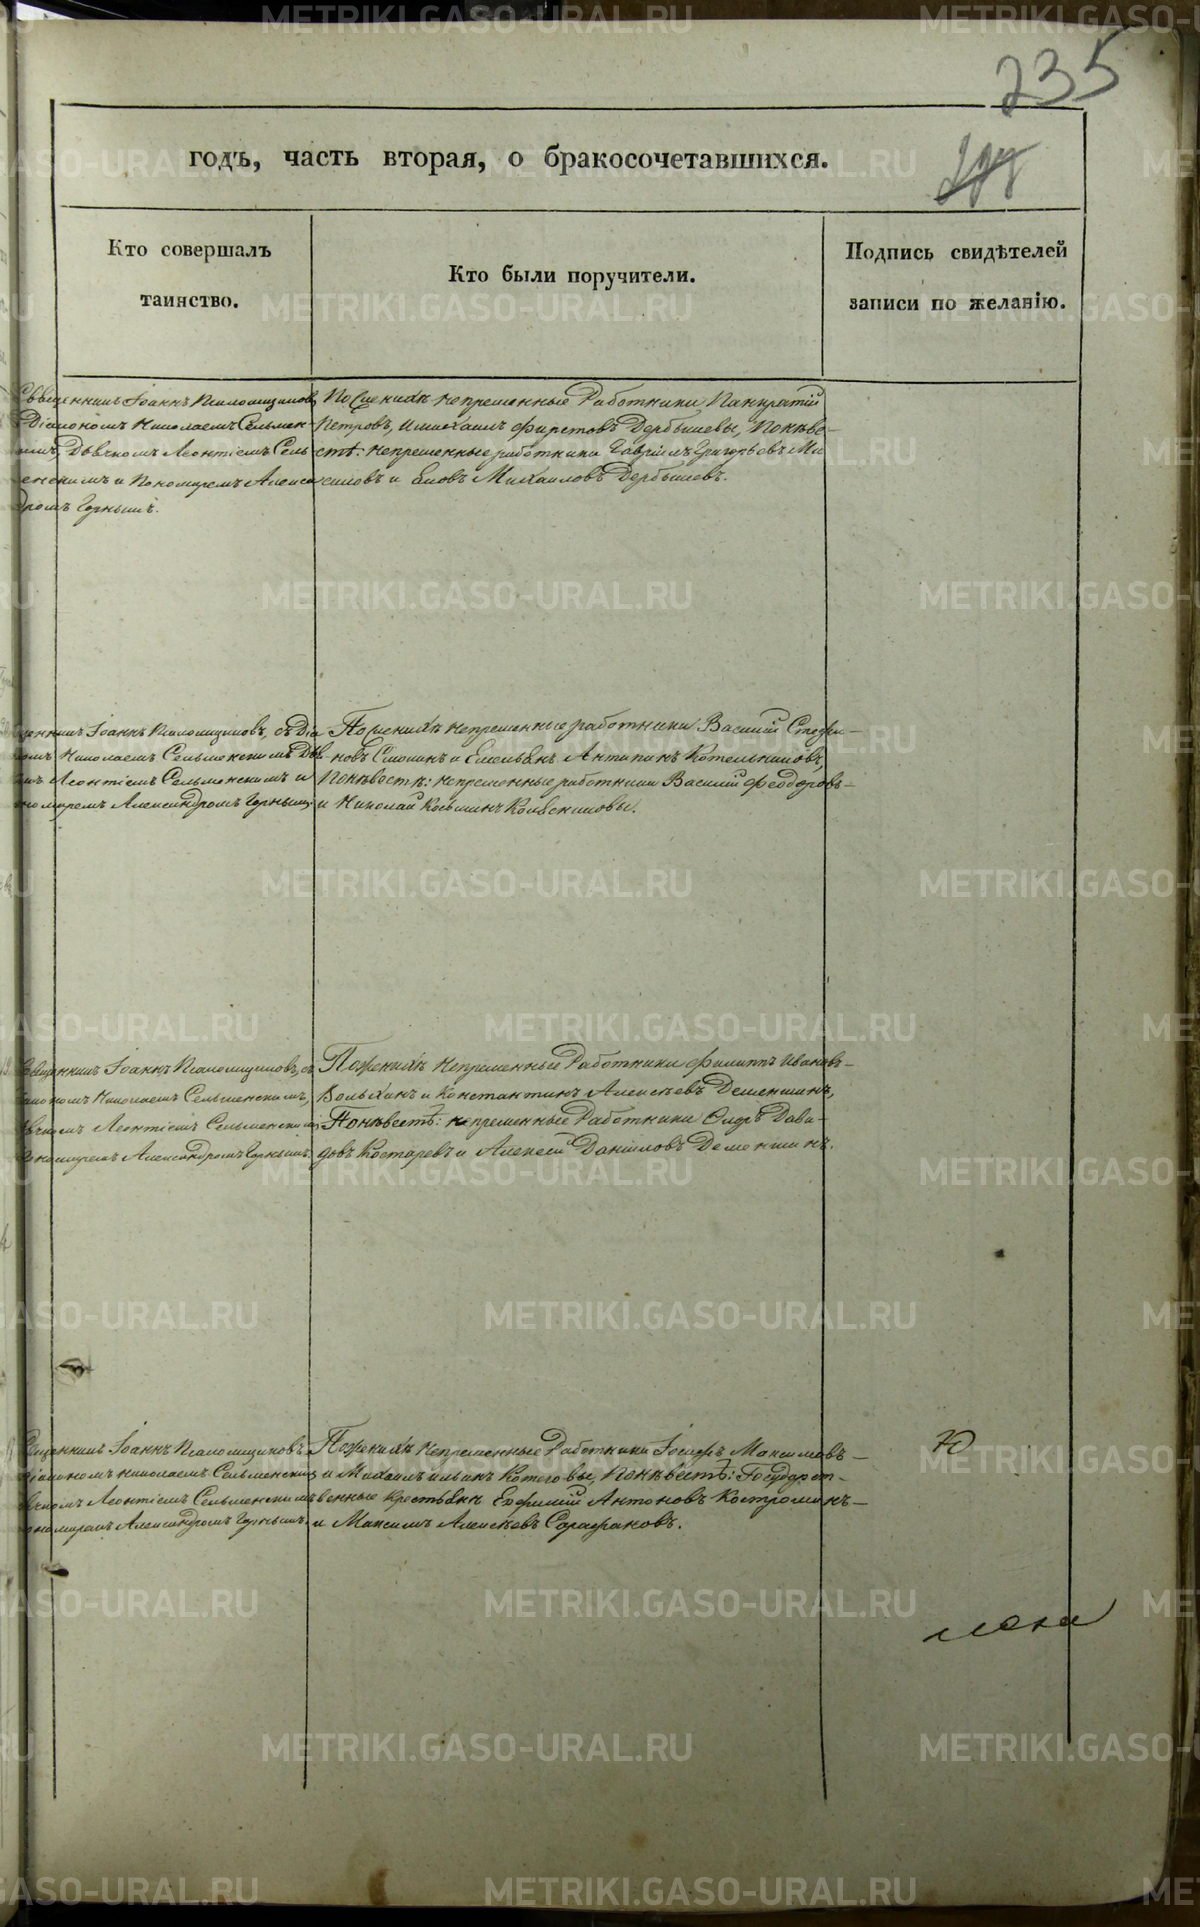 235
годъ, часть вторая, о бракосочетавшихся.
Кто совершалъ
таинство.
Кто были поручители.
Подпись свидѣтелей
записи по желанію.
Священникъ Іоаннъ Псаломщиковъ
Діакономъ Николаемъ Сельмен-
Дьячкомъ Леонтіемъ Сель
менскимъ и Пономаремъ Алекса
дромъ Горныхъ.
По женихѣ непременные Работники Панкратій
Петровъ, и михаилъ Дербышевы, По невѣ-
стѣ: непременные работники Гавріилъ Григорьевъ
и Михаиловъ Дербышевъ.
Іоаннъ Псаломщиковъ, съ Діа
Николаемъ Сельменскимъ
Леонтіемъ Сельменскимъ и
Александромъ Горныхъ
По женихѣ непременные работники Василій Стефа-
новъ и Емельянъ Антипинъ Котельниковъ,
По невѣстѣ: непременные работники Василій Феодоровъ
и Николай Косьминъ Колясниковы.
Священникъ Іоаннъ Псаломщиковъ, съ
Николаемъ Сельменскимъ,
Леонтіемъ Сельменскимъ
Александромъ Горныхъ.
По женихѣ непременные Работники Филиппъ Ивановъ
Волыхинъ и Константинъ Алексѣевъ Деменшинъ,
По невѣстѣ: непременные Работники Давы-
довъ Костаревъ и Алексѣй Даніиловъ Деменшинъ.
Священникъ Іоаннъ Псаломщиковъ
Діакономъ Николаемъ Сельменскимъ
Леонтіемъ Сельменскимъ
Александромъ Горныхъ.
По женихѣ непременные Работники Іосифъ Максимовъ
и Михаилъ Ильинъ Котеговы, По невѣстѣ: Государст-
венные крестьяне Ефимій Антоновъ Костроминъ
и Максимъ Алексѣевъ Сарафановъ.
Ю
METRIKI.GASO-URAL.RU